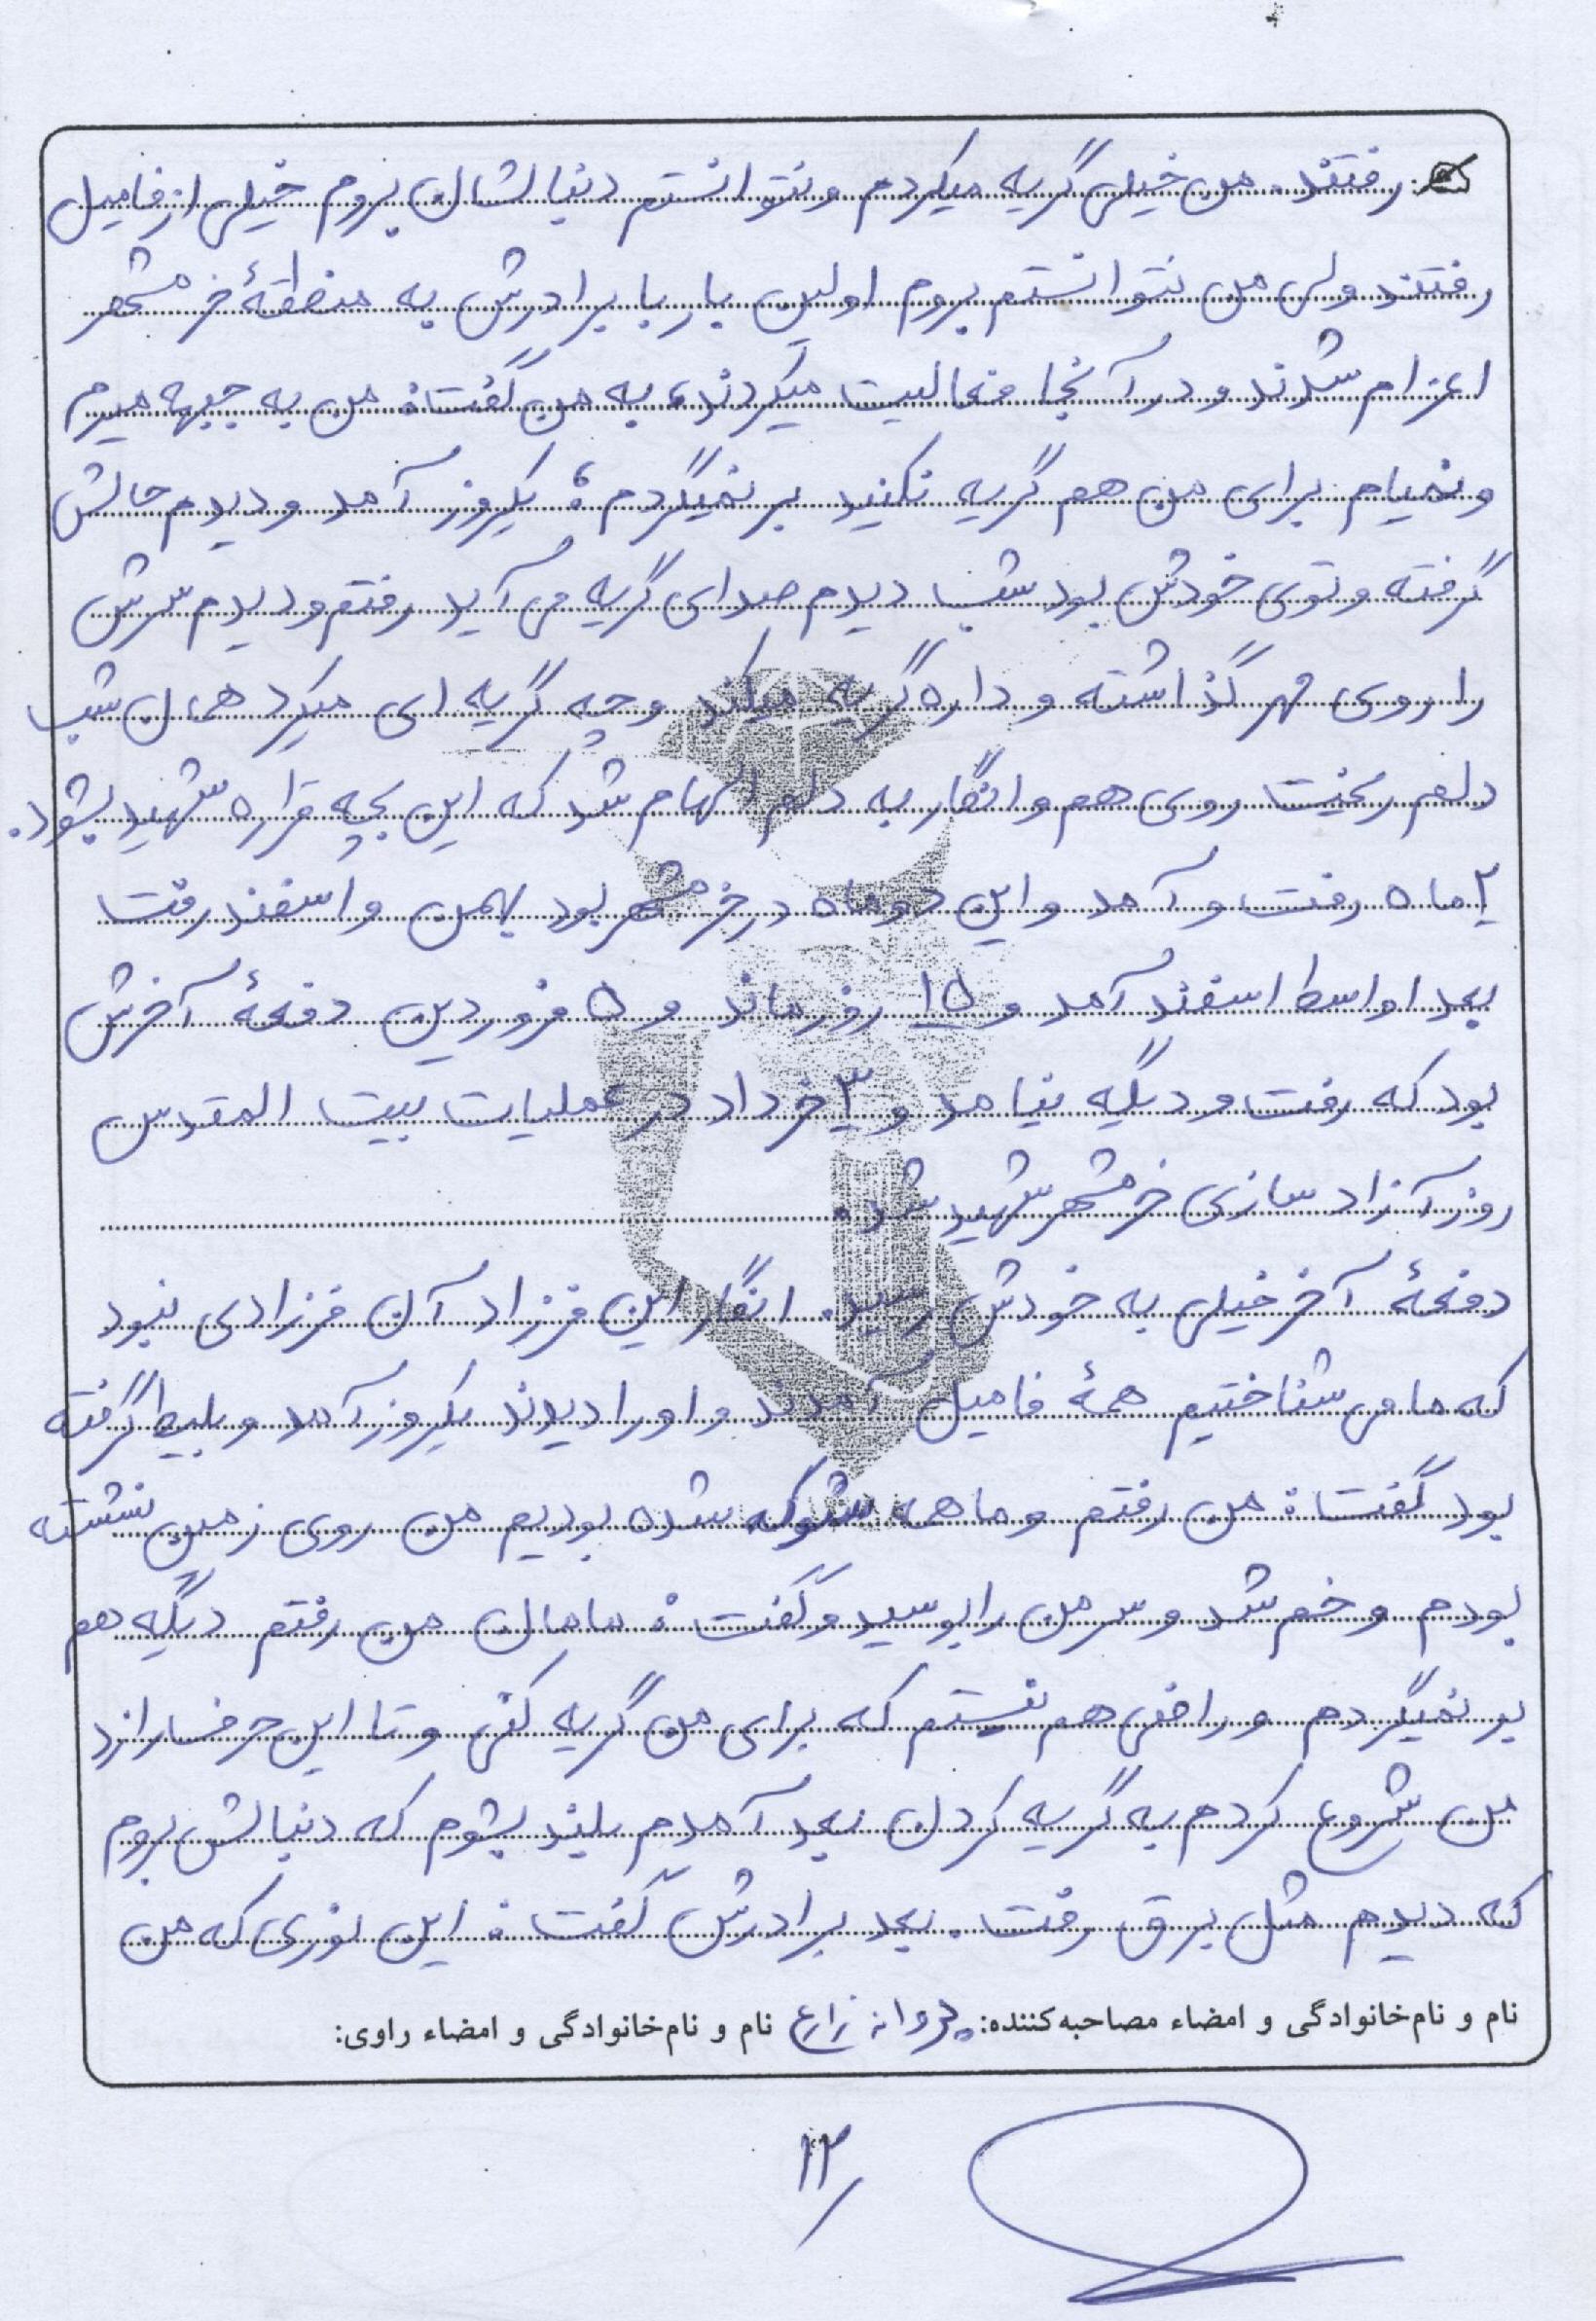 رفتند. من خیلی گریه میکردم ونتوانستم دنبالشان بروم خیلی از فامیل
رفتند ولی من نتوانستم بروم اولین بار با برادرش به منطقهٔ خرمشهر
اعزام شدند و در آنجا فعالیت میکردند، به من گفت: من به جبهه میرم
ونمیام برای من هم گریه نکنید برنمیگردم؛ یکروز آمد ودیدم حالش
گرفته وتوی خودش بود شب دیدم صدای گریه می آید رفتم ودیدم سرش
را روی مهر گذاشته و داره گریه میکند وچه گریه ای میکرد همان شب
دلم ریخت روی هم وانگار به دلم الهام شد که این بچه قراره شهید بشود.
۲ ماه رفت و آمد واین دوماه در خرمشهر بود بهمن واسفند رفت
بعد اواسط اسفند آمد و ۱۵ روز ماند و ۵ فروردین دفعهٔ آخرش
بود که رفت و دیگه نیامد و ۳ خرداد در عملیات بیت المقدس
روز آزادسازی خرمشهر شهید شد.
دفعهٔ آخر خیلی به خودش رسید. انگار این فرزاد آن فرزادی نبود
که ما می شناختیم همهٔ فامیل آمدند و او را دیدند یکروز آمد و بلیط گرفته
بود گفت: من رفتم وما همه شوکه شده بودیم من روی زمین نشسته
بودم و خم شد و سر من را بوسید و گفت: مامان من رفتم دیگه هم
بر نمیگردم و راضی هم نیستم که برای من گریه کنی وتا این حرفها را زد
من شروع کردم به گریه کردن بعد آمدم بلند بشوم که دنبالش بروم
که دیدم مثل برق رفت. بعد برادرش گفت: این نوری که من
نام و نام‌خانوادگی و امضاء مصاحبه‌کننده: پروانه زارع نام و نام‌خانوادگی و امضاء راوی:
۱۲